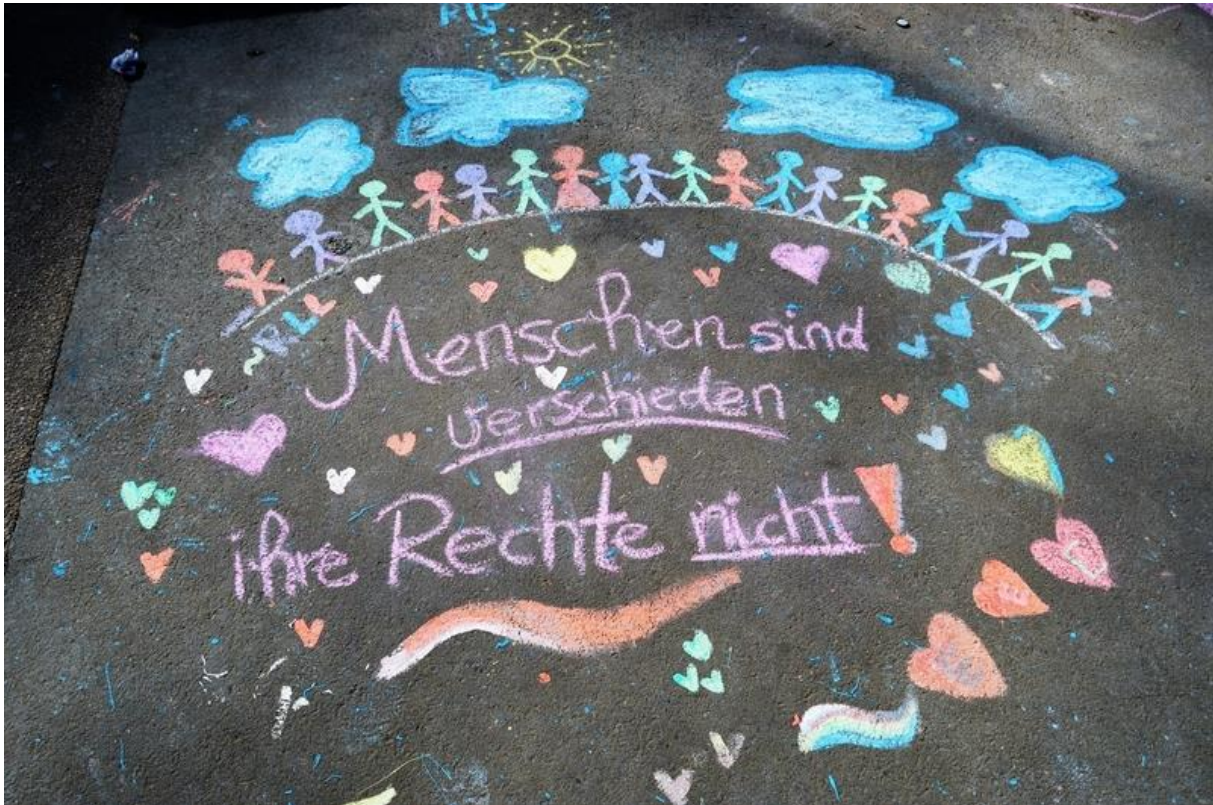 RIP
Menschen sind
verschieden
ihre Rechte nicht!